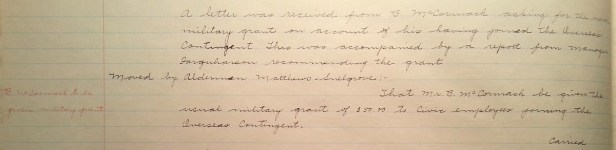 A letter was received from B. McCormack asking for the
military grant on account of his having joined the Overseas
Contingent. This was accompanied by a report from Manager
Farquharson recommending the grant
Moved by Alderman Matthews-Snelgrove:-
That Mr. B. McCormack be given the
B. McCormack to be
given military grant
usual military grant of $50.00 to Civic employees joining the
Overseas Contingent.
Carried